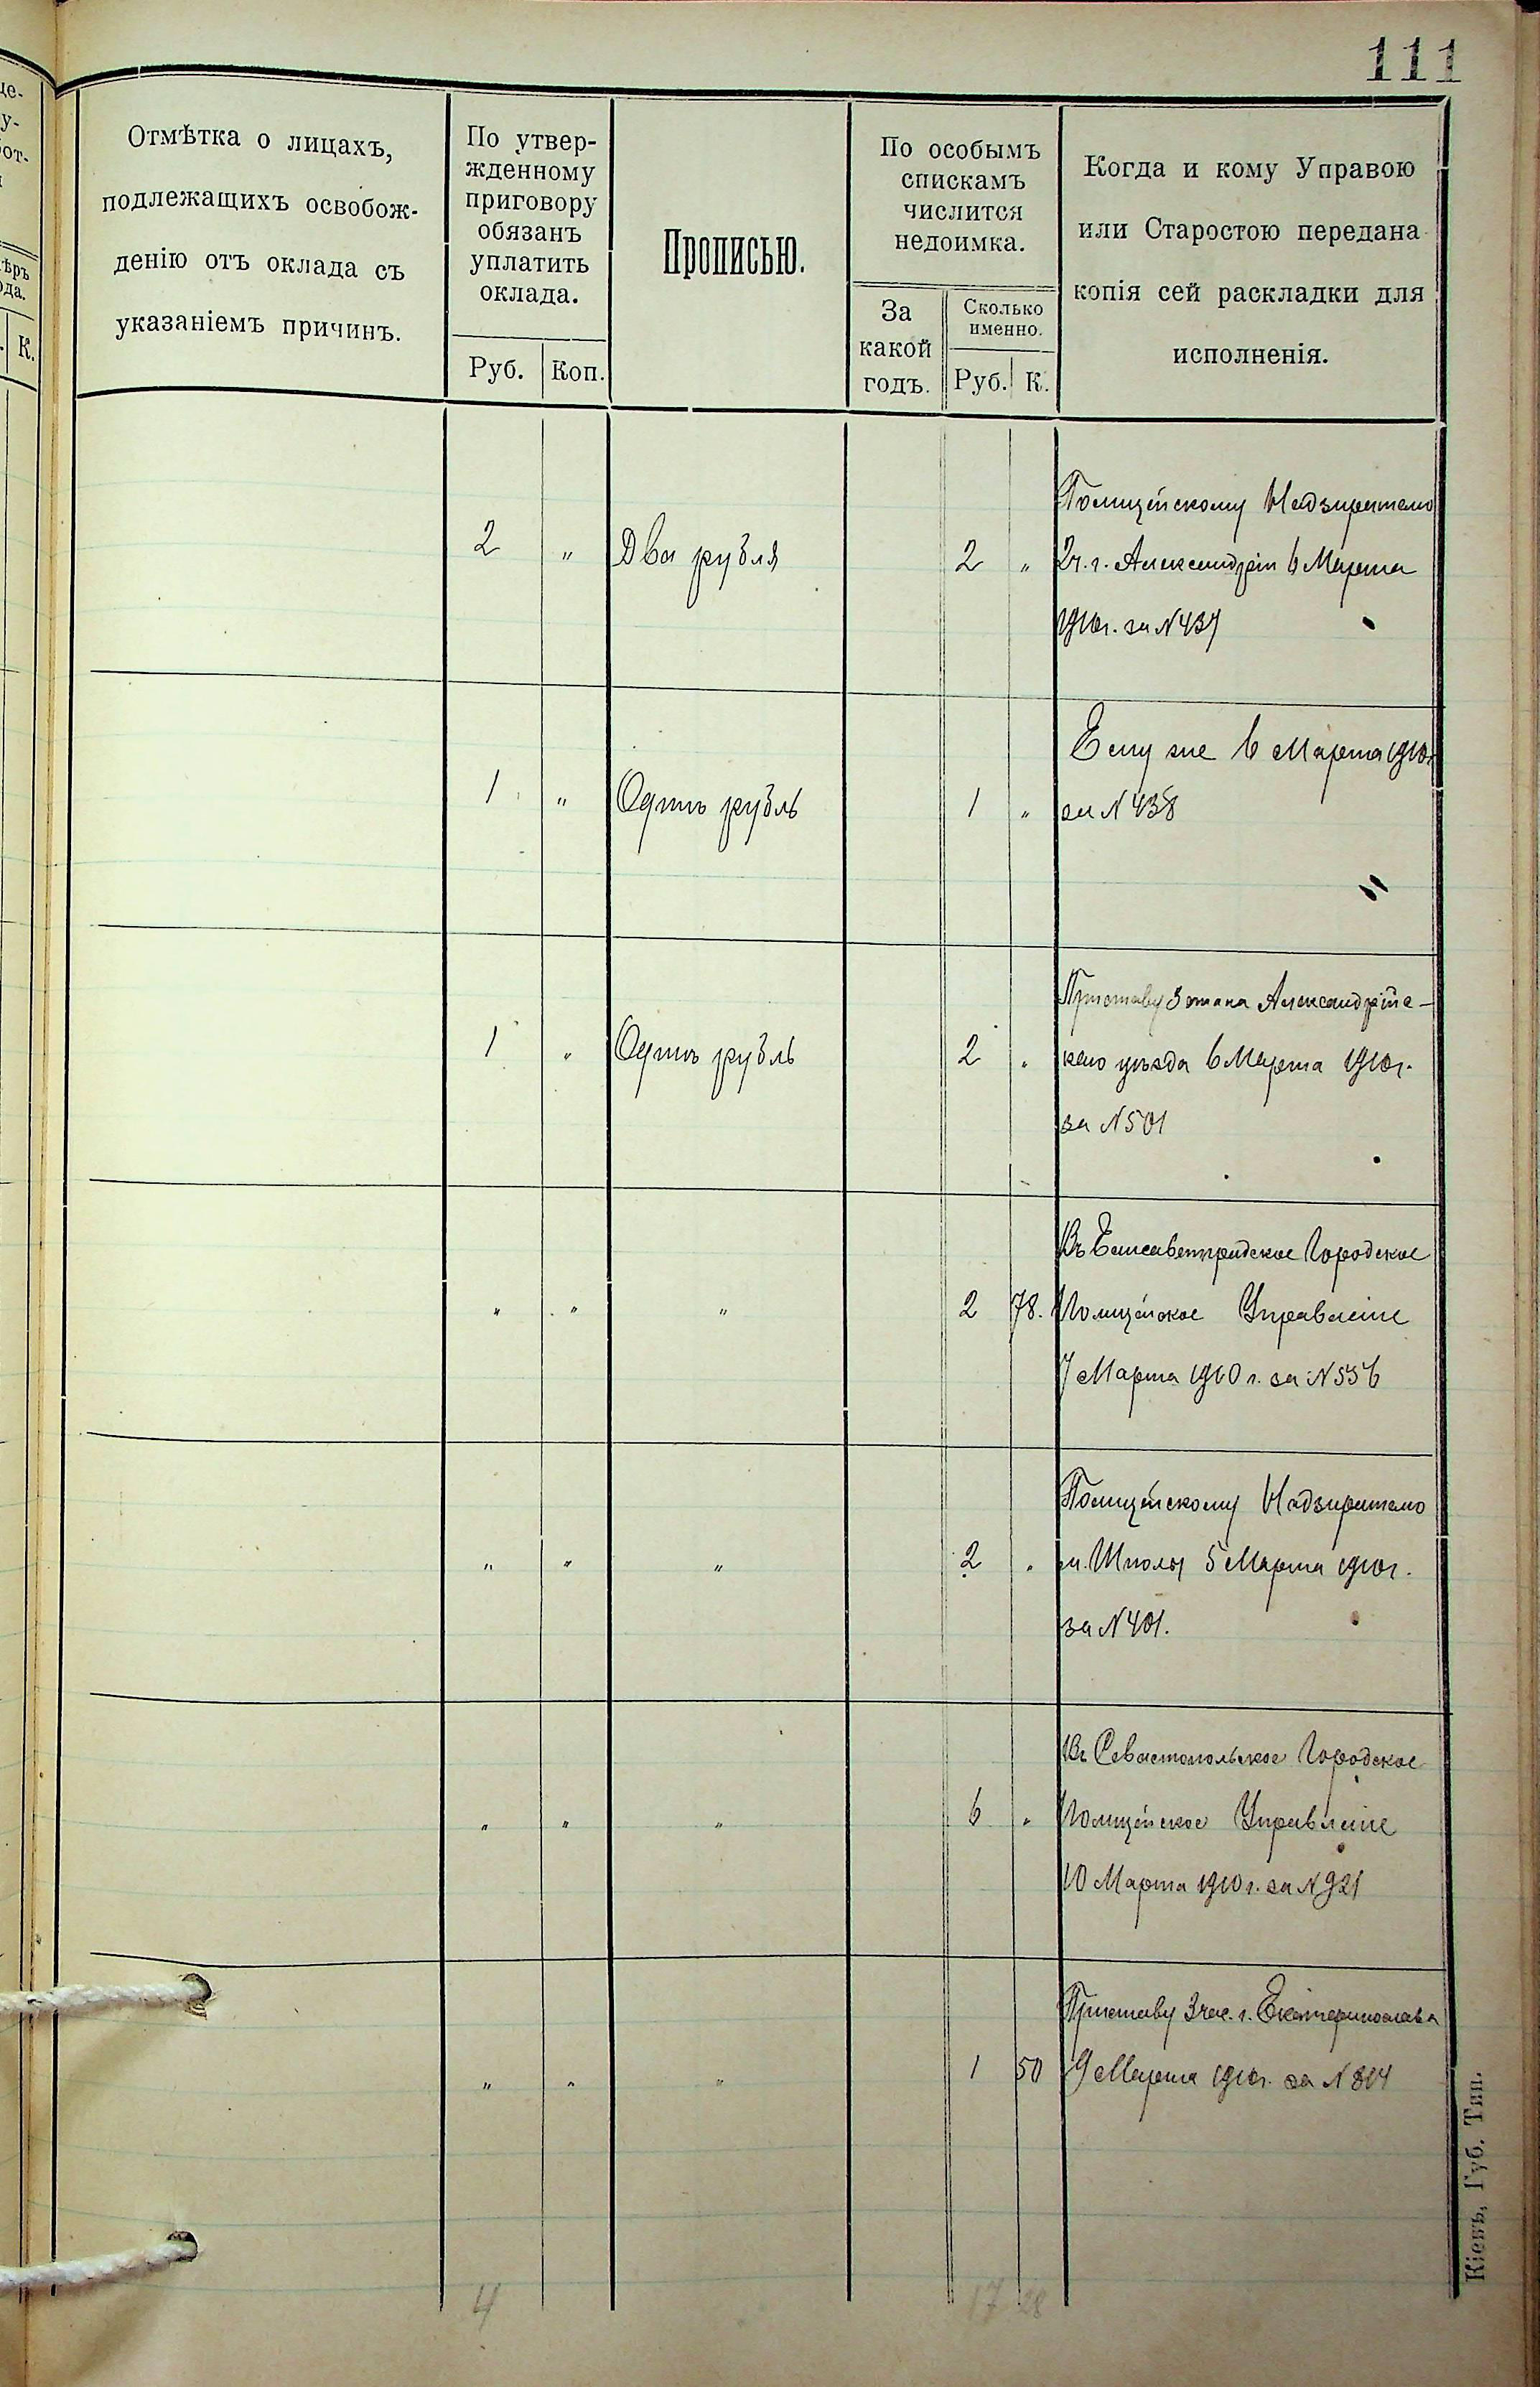 111
це-
у-
от-
ѣръ
ода.
К.
Отмѣтка о лицахъ,
подлежащихъ освобож-
денію отъ оклада съ
указаніемъ причинъ.
По утвер-
жденному
приговору
обязанъ
уплатить
оклада.
Руб. Коп.
Прописью.
По особымъ
спискамъ
числится
недоимка.
За
какой
годъ.
Сколько
именно.
Руб. К.
Когда и кому Управою
или Старостою передана
копія сей раскладки для
исполненія.
Полицейскому Надзирателю
2 " Два рубля 2 " 2 ч. г. Александріи 6 Марта
1910 г. за N 437
Ему же 6 Марта 1910 г.
1 " Одинъ рубль 1 " за N 438
"
Приставу 3 стана Александрійс-
1 " Одинъ рубль 2 " каго уѣзда 6 Марта 1910 г.
за N 501
Въ Елисаветградское Городское
" " " 2 78. Полицейское Управленіе
7 Марта 1910 г. за N 556
Полицейскому Надзирателю
" " " 2 " м. Шполы 5 Марта 1910 г.
за N 401.
Въ Севастопольское Городское
" " " 6 " Полицейское Управленіе
10 Марта 1910 г. за N 921
Приставу 3 час. г. Екатеринослава
" " " 1 50 9 Марта 1910 г. за N 814
4 17 28
Кіевъ, Губ. Тип.